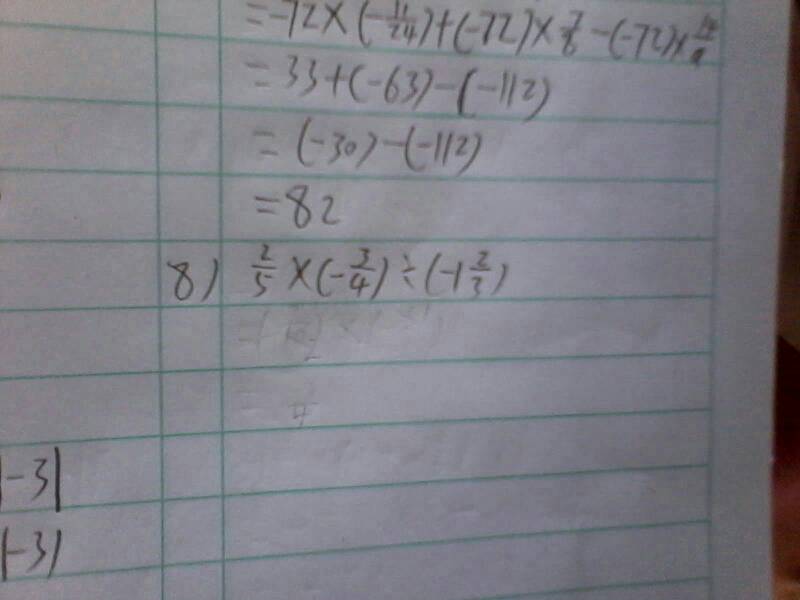 =-72×(-11/24)+(-72)×7/8-(-72)×14/9
=33+(-63)-(-112)
=(-30)-(-112)
=82
8) 2/5×(-3/4)÷(-1 2/3)
|-3|
|-3|